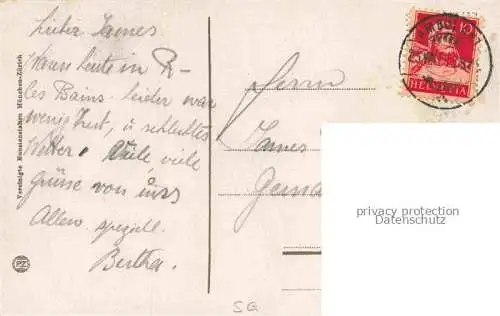 Lieber James
Waren heute in R-
les Bains. Leider war
wenig Zeit, u schlechtes
Wetter. Viele viele
Grüsse von uns
Allen. speziell.
Bertha.
Vereinigte Kunstanstalten München-Zürich
10
HELVETIA
Herrn
James
Gemei
privacy protection
Datenschutz
SG